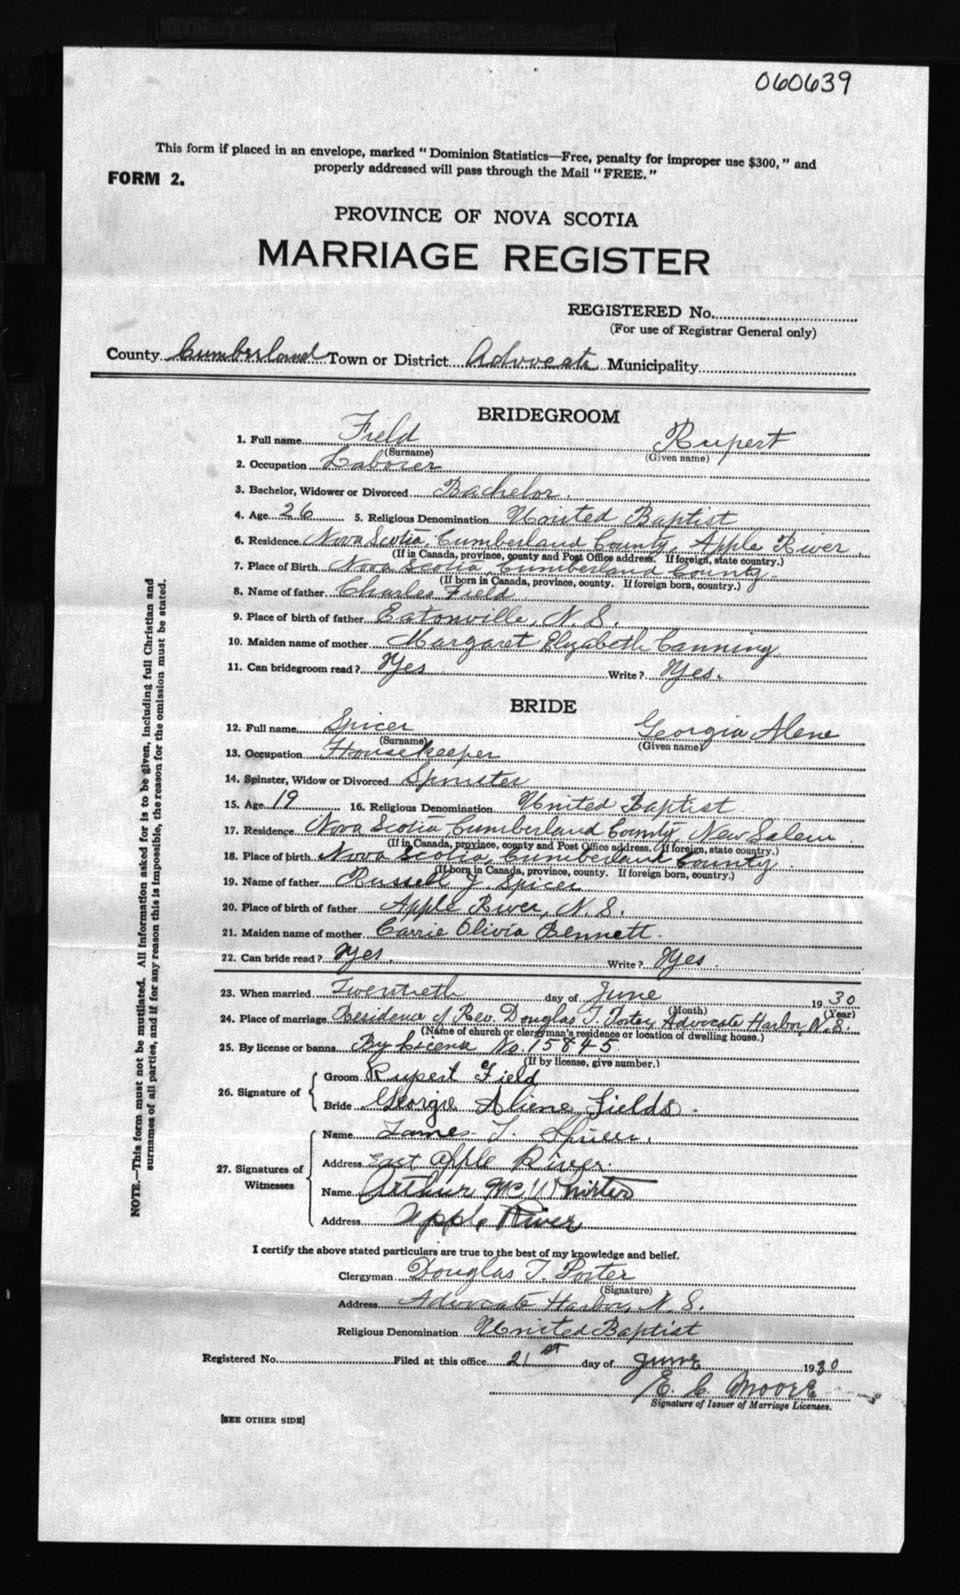 060639
This form if placed in an envelope, marked "Dominion Statistics—Free, penalty for improper use $300," and
properly addressed will pass through the Mail "FREE."
FORM 2.
PROVINCE OF NOVA SCOTIA
MARRIAGE REGISTER
REGISTERED No.
(For use of Registrar General only)
County Cumberland Town or District Advocate Municipality
BRIDEGROOM
1. Full name Field Rupert
(Surname) (Given name)
2. Occupation Laborer
3. Bachelor, Widower or Divorced Bachelor.
4. Age 26 5. Religious Denomination United Baptist
6. Residence Nova Scotia, Cumberland County, Apple River.
(If in Canada, province, county and Post Office address. If foreign, state country.)
7. Place of Birth Nova Scotia, Cumberland County.
(If born in Canada, province, county. If foreign born, country.)
8. Name of father Charles Field
9. Place of birth of father Eatonville, N.S.
10. Maiden name of mother Margaret Elizabeth Canning
11. Can bridegroom read? Yes Write? Yes.
BRIDE
12. Full name Spicer Georgia Alene
(Surname) (Given name)
13. Occupation House Keeper
14. Spinster, Widow or Divorced Spinster
15. Age 19 16. Religious Denomination United Baptist
17. Residence Nova Scotia, Cumberland County, New Salem
(If in Canada, province, county and Post Office address. If foreign, state country.)
18. Place of birth Nova Scotia, Cumberland County.
(If born in Canada, province, county. If foreign born, country.)
19. Name of father Russell J. Spicer
20. Place of birth of father Apple River, N.S.
21. Maiden name of mother Carrie Olivia Bennett.
22. Can bride read? Yes. Write? Yes.
23. When married Twentieth day of June 1930
(Month) (Year)
24. Place of marriage Residence of Rev. Douglas T. Advocate Harbor, N.S.
(Name of church or clergyman's residence or location of dwelling house.)
25. By license or banns By License No. 15845
(If by license, give number.)
26. Signature of
Groom Rupert Field
Bride Georgie Aliene Fields.
27. Signatures of Witnesses
Name James T.
Address East Apple River.
Name Arthur
Address Apple River
I certify the above stated particulars are true to the best of my knowledge and belief.
Clergyman Douglas T. Porter
(Signature)
Address Advocate Harbor, N.S.
Religious Denomination United Baptist
Registered No. Filed at this office 21st day of June 1930
E. C. Moore
Signature of Issuer of Marriage Licenses.
[SEE OTHER SIDE]
NOTE.—This form must not be mutilated. All information asked for is to be given, including full Christian and
surnames of all parties, and if for any reason this is impossible, the reason for the omission must be stated.